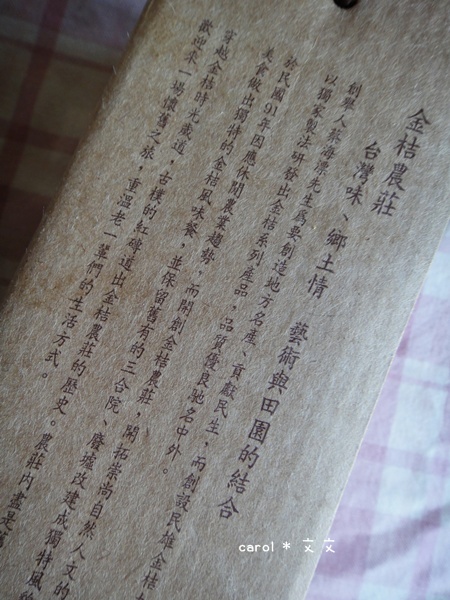 金桔農莊
台灣味、鄉土情 藝術與田園的結合
創舉人蔡海票先生為要創造地方名產、貢獻民生,而創設民雄金桔
以獨家製法研發出金桔系列產品,品質優良馳名中外。
於民國91年因應休閒農業趨勢,而開創金桔農莊,開拓崇尚自然人文的
美食做出獨特的金桔風味餐,並保留舊有的三合院、廢墟改建成獨特風
穿越金桔時光歲道,古樸的紅磚道出金桔農莊的歷史。農莊內盡是
歡迎來一場懷舊之旅,重溫老一輩們的生活方式。
carol * 文文